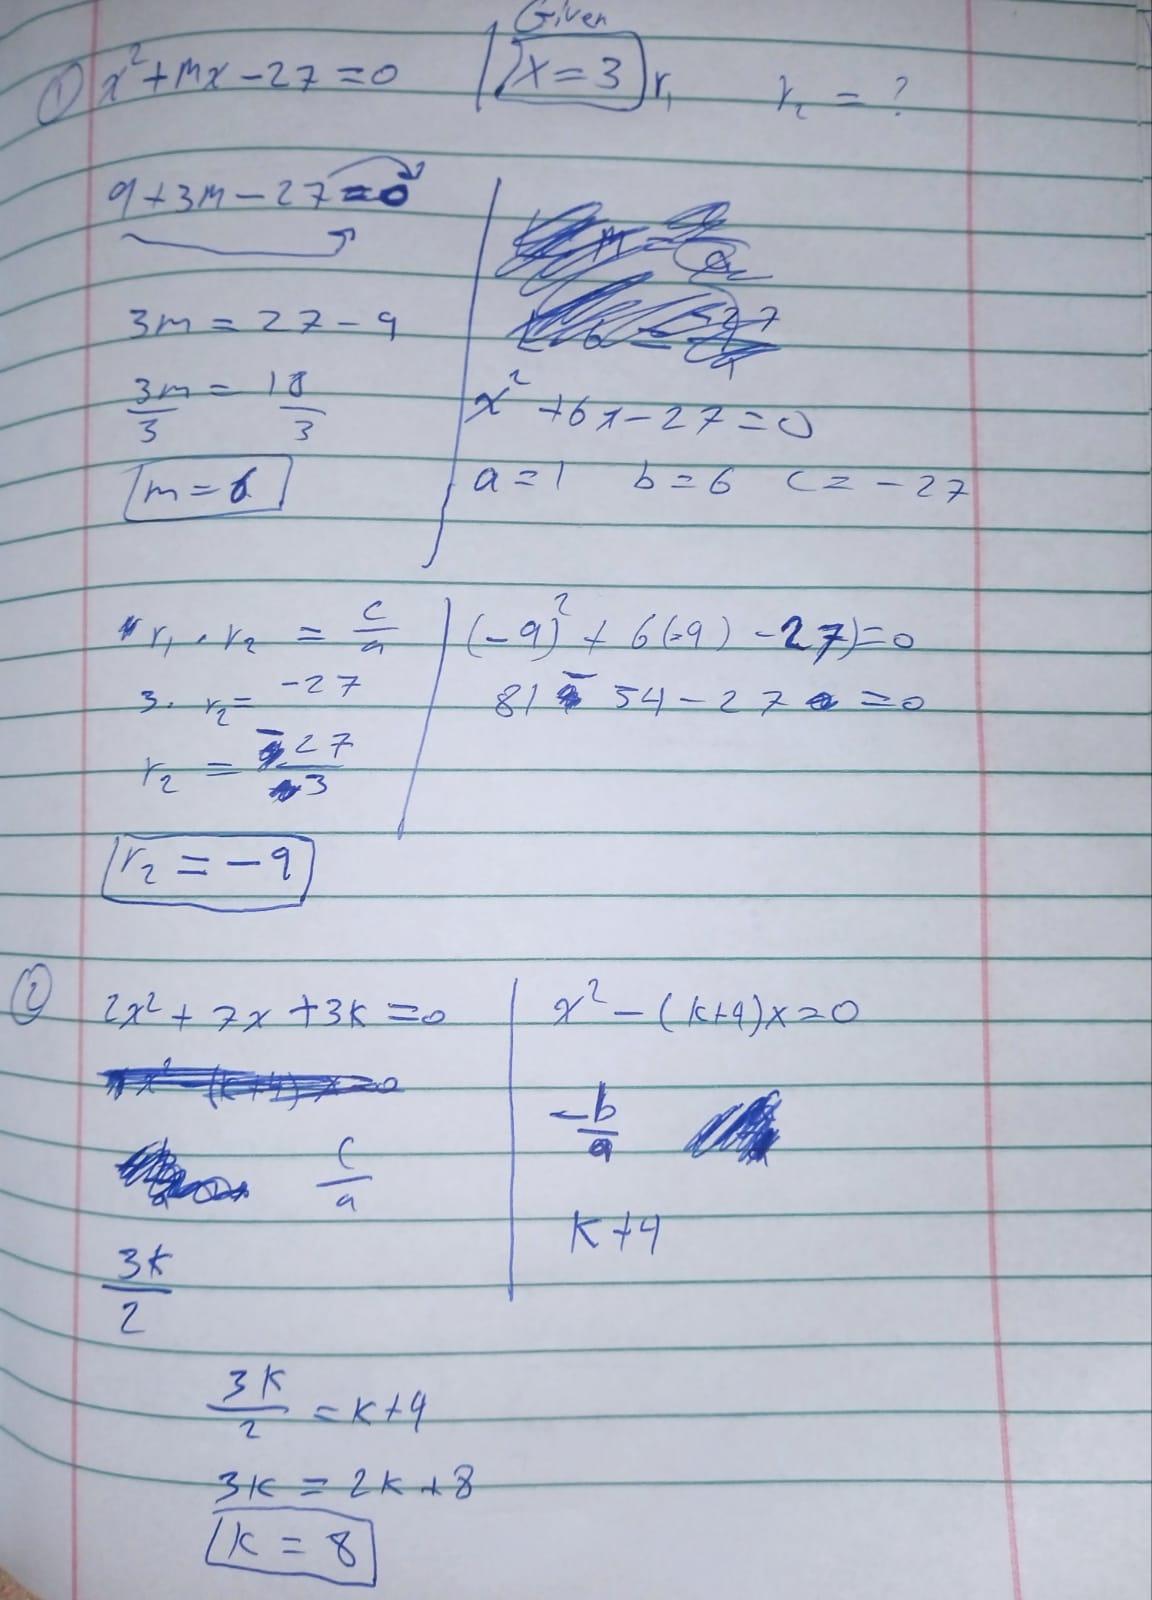 Given
① x² + mx - 27 = 0 | x = 3 r₁ r₂ = ?
9 + 3m - 27 = 0
3m = 27 - 9
3m/3 = 18/3
m = 6
x² + 6x - 27 = 0
a = 1 b = 6 c = -27
r₁ . r₂ = c/a
3 . r₂ = -27
r₂ = -27/3
r₂ = -9
(-9)² + 6(-9) - 27) = 0
81 - 54 - 27 = 0
② 2x² + 7x + 3k = 0
c/a
3k/2
x² - (k+4)x = 0
-b/a
k+4
3k/2 = k+4
3k = 2k + 8
k = 8